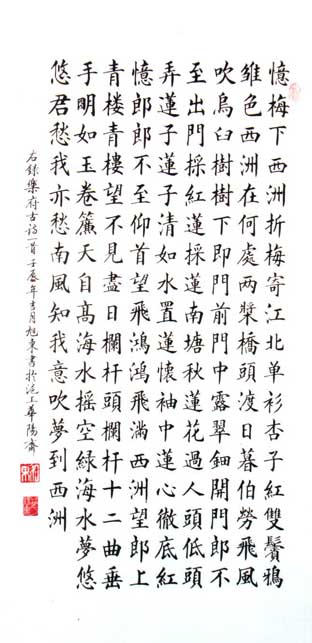 憶梅下西洲折梅寄江北單衫杏子紅雙鬢鴉
雛色西洲在何處兩槳橋頭渡日暮伯勞飛風
吹烏臼樹樹下即門前門中露翠鈿開門郎不
至出門採紅蓮採蓮南塘秋蓮花過人頭低頭
弄蓮子蓮子清如水置蓮懷袖中蓮心徹底紅
憶郎郎不至仰首望飛鴻鴻飛滿西洲望郎上
青楼青樓望不見盡日欄杆頭欄杆十二曲垂
手明如玉卷簾天自高海水摇空緑海水夢悠
悠君愁我亦愁南風知我意吹夢到西洲
右録樂府古詩一首壬辰年吉月旭東書於沪上華陽齋